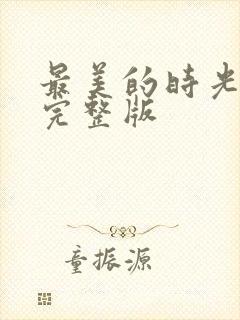 最美的时光
完整版
童振源